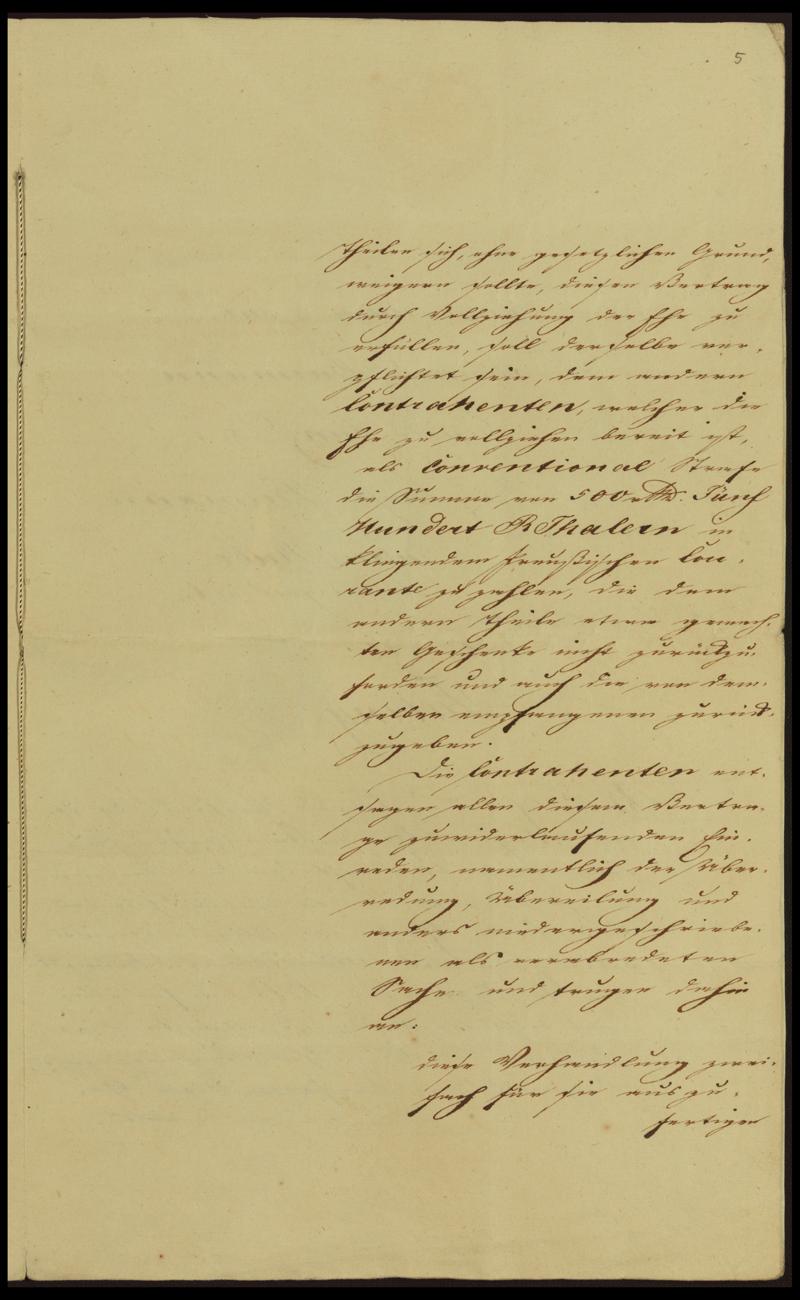 5
Theilen sich, ohne gesetzlichen Grund,
weigern sollte, diesen Vertrag
durch Vollziehung der Ehe zu
erfüllen, soll derselbe ver-
pflichtet sein, dem andern
Contrahenten, welcher die
Ehe zu vollziehen bereit ist,
als Conventional Strafe
die Summe von 500 rthlr. Fünf
Hundert RThalern in
klingendem Preußischen Cou-
rante zu zahlen, die dem
andern Theile etwa gemach-
ten Geschenke nicht zurückzu-
fordern und auch die von dem-
selben empfangenen zurück-
zugeben.
Die Contrahenten ent-
sagen allen diesem Vertra-
ge zuwiderlaufenden Ein-
reden, namentlich der Über-
redung, Übereilung und
anders niedergeschriebe-
nen als verabredeten
Sache und trugen dahin
an:
diese Verhandlung zwei-
fach für sie auszu-
fertigen